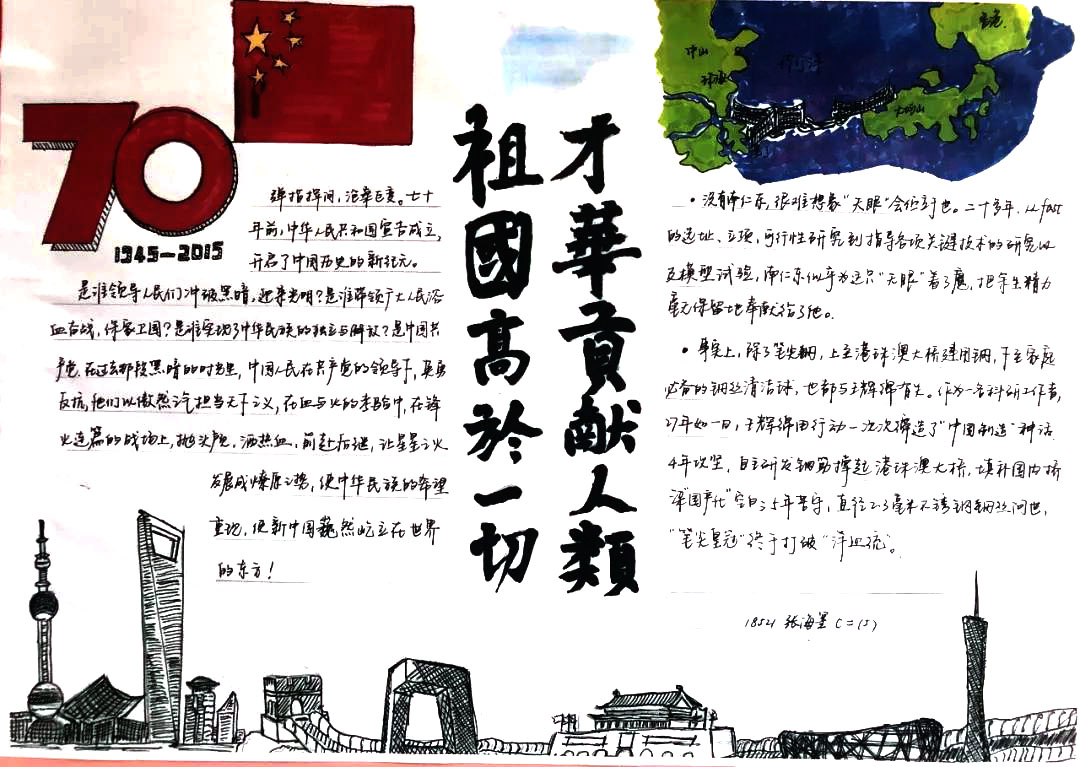 70
1945—2015
弹指挥间，沧桑巨变。七十
年前，中华人民共和国宣告成立，
开启了中国历史的新纪元。
是谁领导人民们冲破黑暗，迎来光明？是谁带领广大人民浴
血奋战，保家卫国？是谁实现了中华民族的独立与解放？是中国共
产党。在过去那段黑暗的时光里，中国人民在共产党的领导下，奋勇
反抗，他们以傲然之气担当天下之义，在血与火的考验中，在锋
火连篇的战场上，抛头颅，洒热血，前赴后继，让星星之火
发展成燎原之势，使中华民族的希望
重现，使新中国巍然屹立在世界
的东方！
才華貢献人類
祖國高於一切
中山
珠海
伶仃洋
大屿山
香港
• 没有南仁东，很难想象“天眼”会位于此。二十多年，从fast
的选址、立项，可行性研究到指导各项关键技术的研究以
及模型试验，南仁东似乎为这只“天眼”着了魔，把余生精力
毫无保留地奉献给了他。
• 事实上，除了笔尖钢，上至港珠澳大桥建用钢，下至家庭
必备的钢丝清洁球，也都与王辉绵有关。作为一名科研工作者，
27年如一日，王辉绵用行动一次次缔造了“中国制造”神话
4年攻坚，自主研发钢筋撑起港珠澳大桥，填补国内桥
梁“国产化”空白；5年苦守，直径2.3毫米不锈钢钢丝问世，
“笔尖皇冠”终于打破“洋垄断”。
18521 张海星 C=157